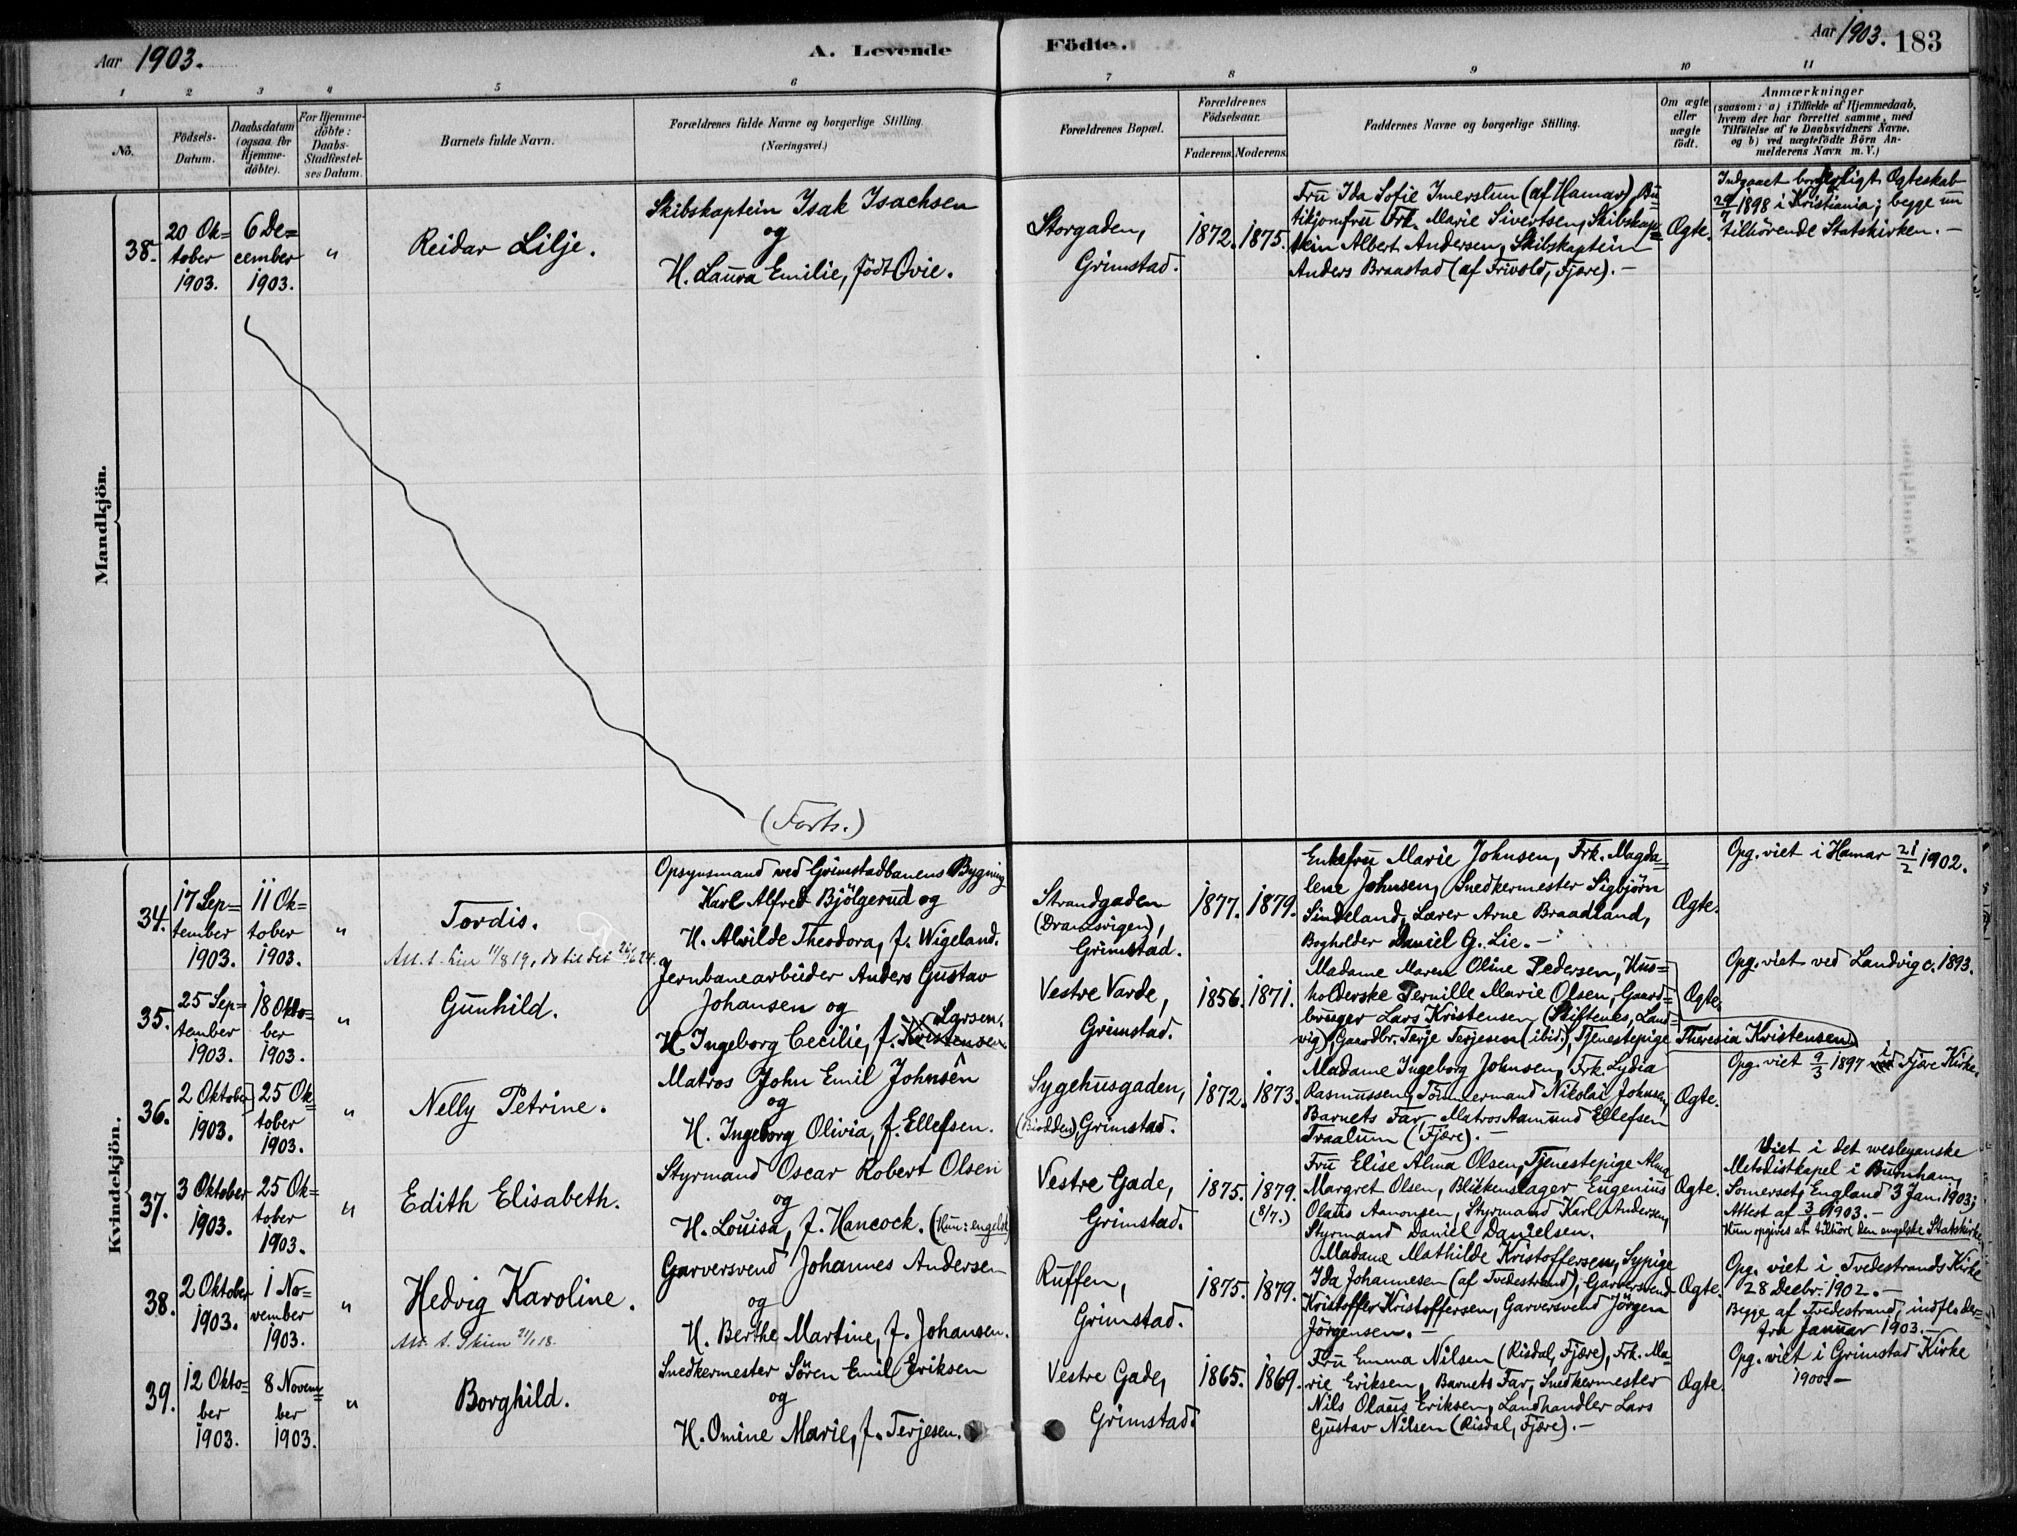 Aar 1903.
A. Levende Födte.
Aar 1903. 183
1 2 3 4 5 6 7 8 9 10 11
No.
Födsels-
Datum.
Daabsdatum
(ogsaa for
Hjemme-
døbte).
For Hjemme-
döbte:
Daabs-
Stadfæstel-
ses Datum.
Barnets fulde Navn.
Forældrenes fulde Navne og borgerlige Stilling.
(Næringsvei.)
Forældrenes Bopæl.
Forældrenes
Födselsaar.
Faderens. Moderens.
Faddernes Navne og borgerlige Stilling.
Om ægte
eller
uægte
født.
Anmærkninger
(saasom: a) i Tilfælde af Hjemmedaab,
hvem der har forrettet samme, med
Tilföielse af to Daabsvidners Navne,
og b) ved uægtefödte Börn An-
melderens Navn m. V.)
Mandkjön.
38.
20 Ok=
tober
1903.
6 De=
cember
1903.
"
Reidar Lilje.
Skibskaptein Isak Isachsen
og
H. Laura Emilie, födt Ovie.
Storgaden,
Grimstad.
1872. 1875.
Fru Ida Sofie Imerslun (af Hamar), Bu=
tikjomfru Frk. Marie Sivertsen, Skibskap=
tein Albert Andersen, Skibskaptein
Anders Braastad (af Frivold, Fjære). —
Ægte.
Indgaaet borgerligt Ægteskab
29/7 1898 i Kristiania; begge nu
tilhörende Statskirken. —
(Forts.)
Kvindekjön.
34.
17 Sep=
tember
1903.
11 Ok=
tober
1903.
"
Tordis.
Att. s. 11/8 19, do til det 24.
Opsynsmand ved Grimstadbanens Bygning
Karl Alfred Bjölgerud og
H. Alvilde Theodora, f. Wigeland.
Strandgaden
(Dramsvigen),
Grimstad.
1877. 1879.
Enkefru Marie Johnsen, Frk. Magda=
lene Johnsen, Snedkermester Sigbjörn
Sindeland, Lærer Arne Braadland,
Bogholder Daniel G. Lie. —
Ægte.
Opg. viet i Hamar 21/2 1902.
35.
25 Sep=
tember
1903.
18 Okto=
ber
1903.
"
Gunhild.
Jernbanearbeider Anders Gustav
Johansen og
Larsen.
H. Ingeborg Cecilie, f. Kristensen.
Vestre Varde,
Grimstad.
1856. 1871.
Madame Maren Oline Pedersen, Hus=
holderske Pernille Marie Olsen, Gaard=
bruger Lars Kristensen (Skiftenes, Land=
vig), Gaardbr. Tarje Terjesen (ibid.), Tjenestepige Theresia Kristensen.
Ægte.
Opg. viet ved Landvig c. 1893.
36.
2 Oktober
1903.
25 Ok=
tober
1903.
"
Nelly Petrine.
Matros John Emil Johnsen
og
H. Ingeborg Olivia, f. Ellefsen.
Sygehusgaden,
(Biodden), Grimstad.
1872. 1873.
Madame Ingeborg Johnsen, Frk. Lydia
Rasmussen, Tömmermand Nikolai Johnsen,
Barnets Far, Matros Aamund Ellefsen
Traalum (Fjære). —
Ægte.
Opg. viet 9/3 1897 i Fjære Kirke.
37.
3 Oktober
1903.
25 Ok=
tober
1903.
"
Edith Elisabeth.
Styrmand Oscar Robert Olsen
og
H. Louisa, f. Hancock. (Hun: engelsk)
Vestre Gade,
Grimstad.
1875. 1879.
(8/7.)
Fru Elise Alma Olsen, Tjenestepige Alma
Margret Olsen, Blikkenslager Eugenius
Olaus Aanonsen, Styrmand Karl Andersen,
Styrmand Daniel Danielsen.
Ægte.
Viet i det wesleyanske
Metodistkapel i Burnham,
Somerset, England 3 Jan. 1903;
Attest af 3/1 1903. —
Hun opgives at tilhöre den engelske Statskirke.
38.
2 Oktober
1903.
1 No=
vember
1903.
"
Hedvig Karoline.
Att. s. Skien 21/1 18.
Garversvend Johannes Andersen
og
H. Berthe Martine, f. Johansen.
Ruffen,
Grimstad.
1875. 1879.
Madame Mathilde Kristoffersen, Sypige
Ida Johannesen (af Tvedestrand), Garversvend
Kristoffer Kristoffersen, Garversvend Jörgen
Jörgensen. —
Ægte.
Opg. viet i Tvedestrands Kirke
28 Decbr. 1902. —
Begge af Tvedestrand, indfl. der=
fra Januar 1903. —
39.
12 Okto=
ber
1903.
8 Novem=
ber
1903.
"
Borghild.
Snedkermester Sören Emil Eriksen
og
H. Omine Marie, f. Terjesen.
Vestre Gade,
Grimstad.
1865. 1869.
Fru Emma Nilsen (Risdal, Fjære), Frk. Ma=
rie Eriksen, Barnets Far, Snedkermester
Nils Olaus Eriksen, Landhandler Lars
Gustav Nilsen (Risdal, Fjære). —
Ægte.
Opg. viet i Grimstad Kirke
1900. —